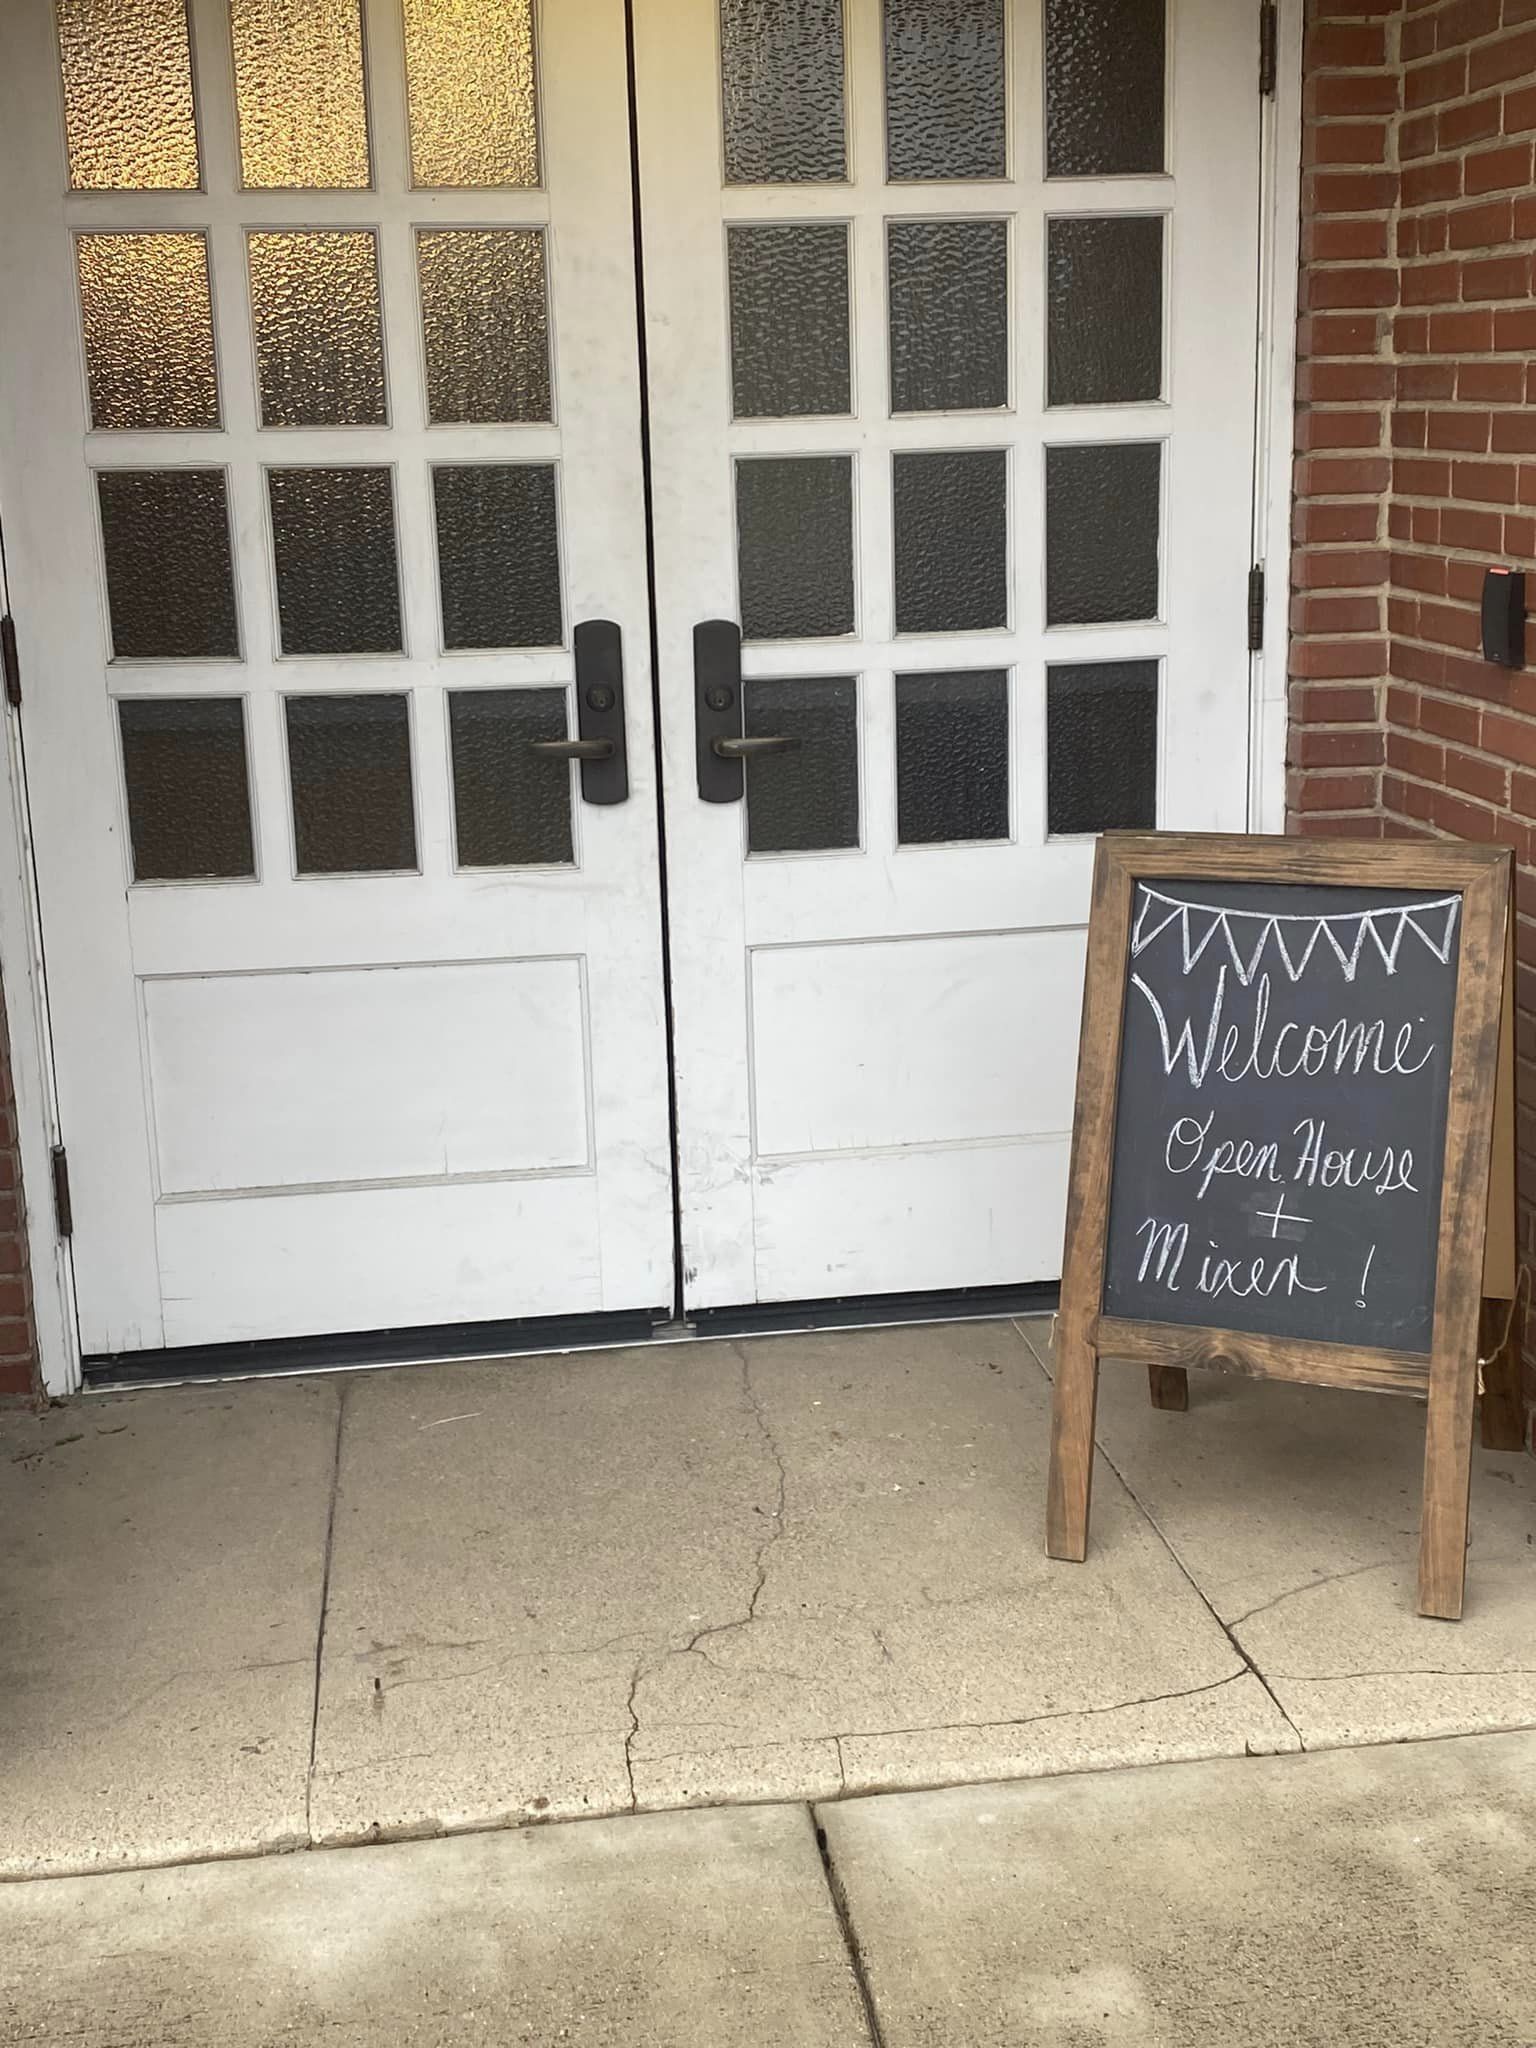 Welcome
Open House
+
Mixer !